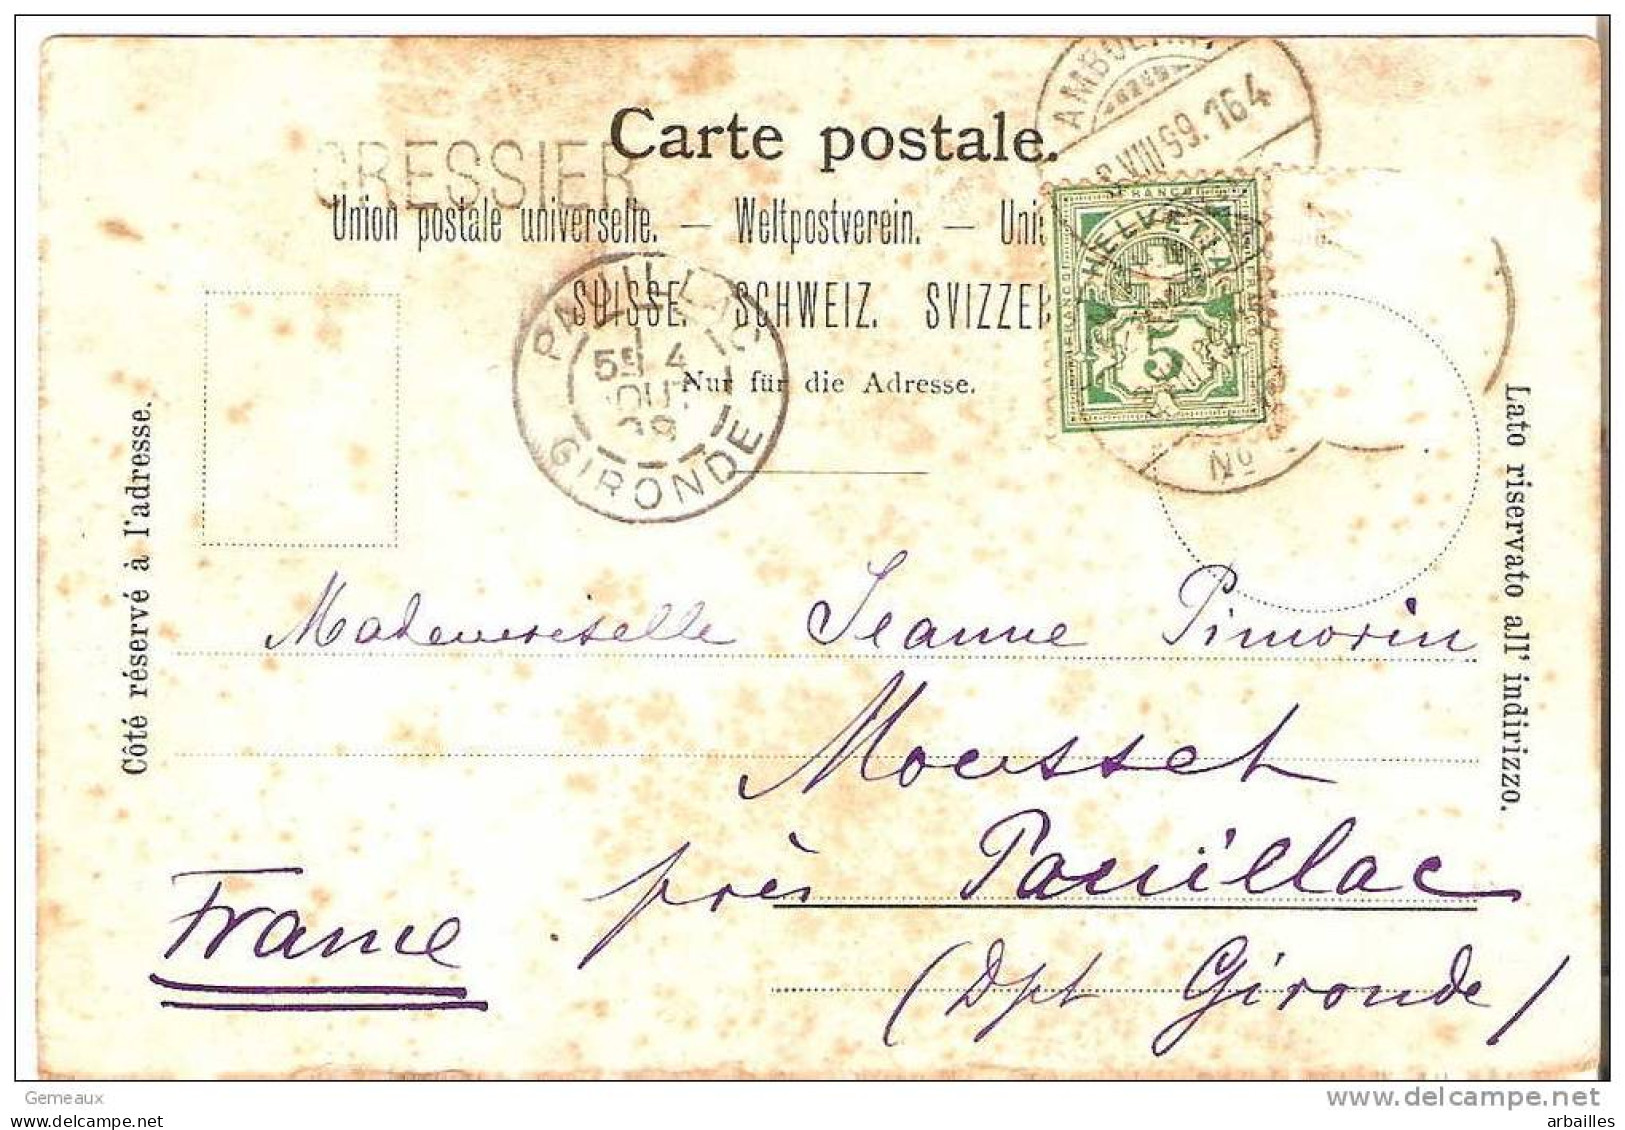 AMBULANT
Carte postale.
VIII 99. 164
CRESSIER
Union postale universelle. — Weltpostverein. — Uni
FRANCO
HELVETIA
FRANCO
5
SUISSE. SCHWEIZ. SVIZZE
Nur für die Adresse.
PAUILLAC
5E 4
OUT
GIRONDE
No
Côté réservé à l'adresse.
Lato riservato all' indirizzo.
Mademoiselle Jeanne Pimorin
Mousset
près Pauillac
(Dpt Gironde)
France
Gemeaux
www.delcampe.net
arbailles